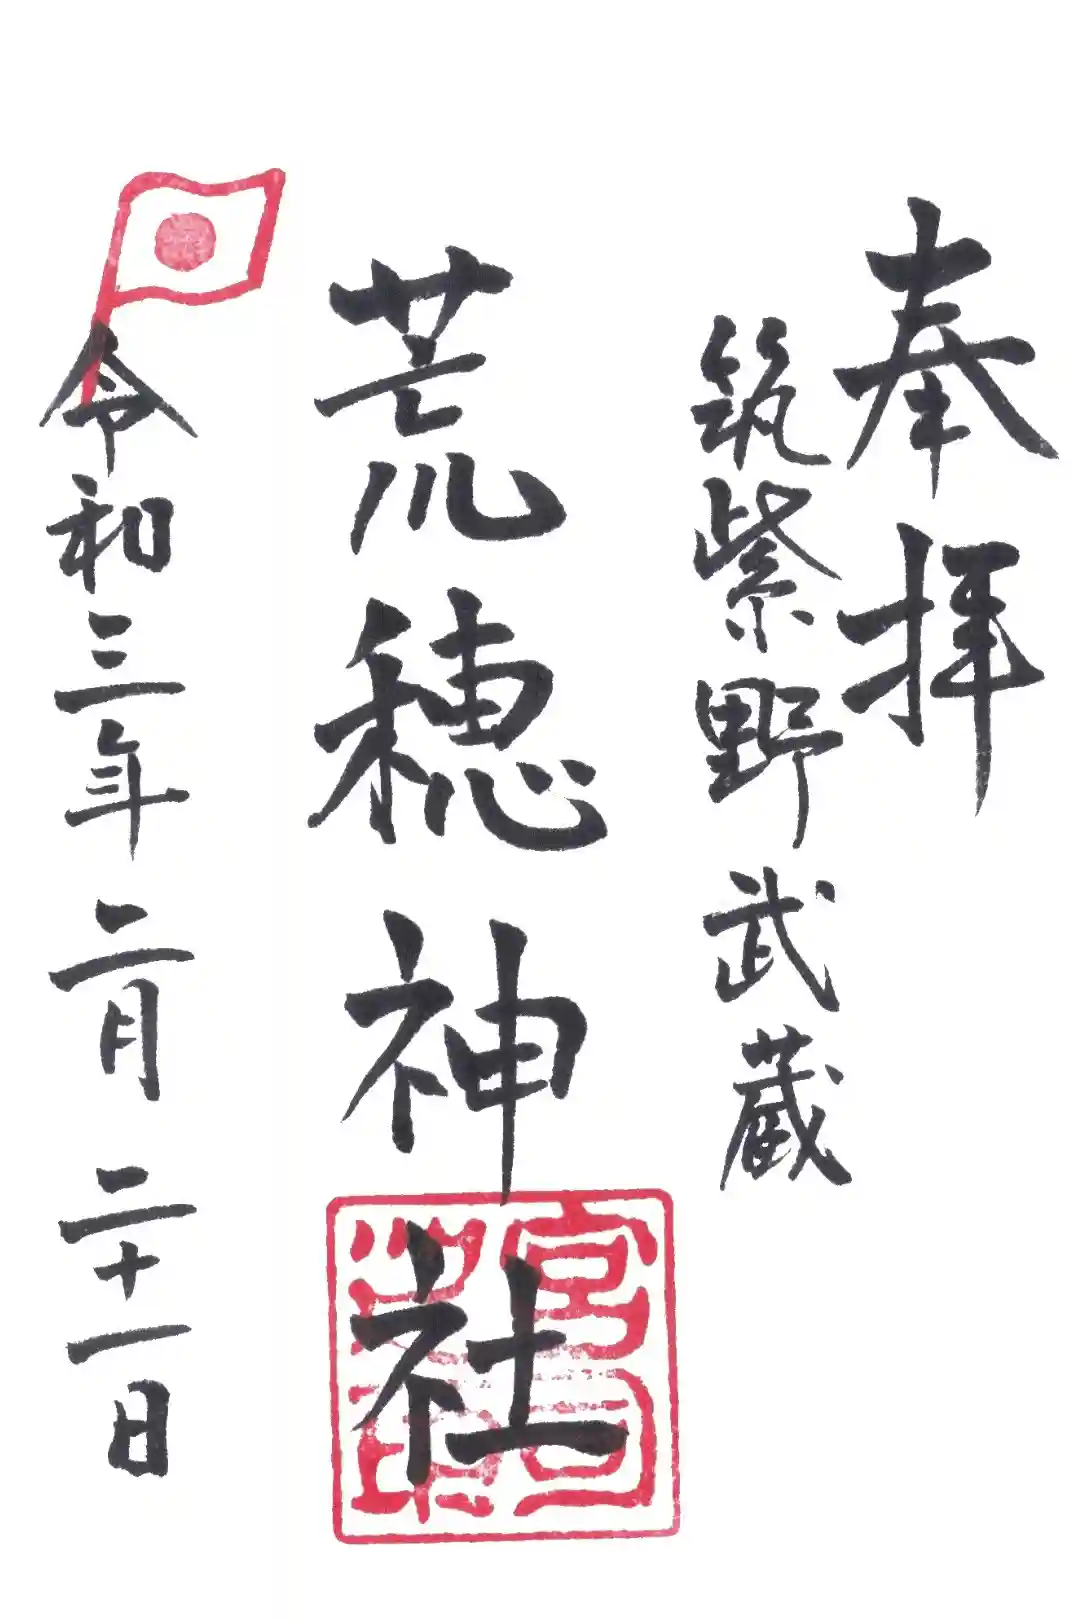 奉拝
筑紫野武蔵
荒穂神社
令和三年二月二十一日